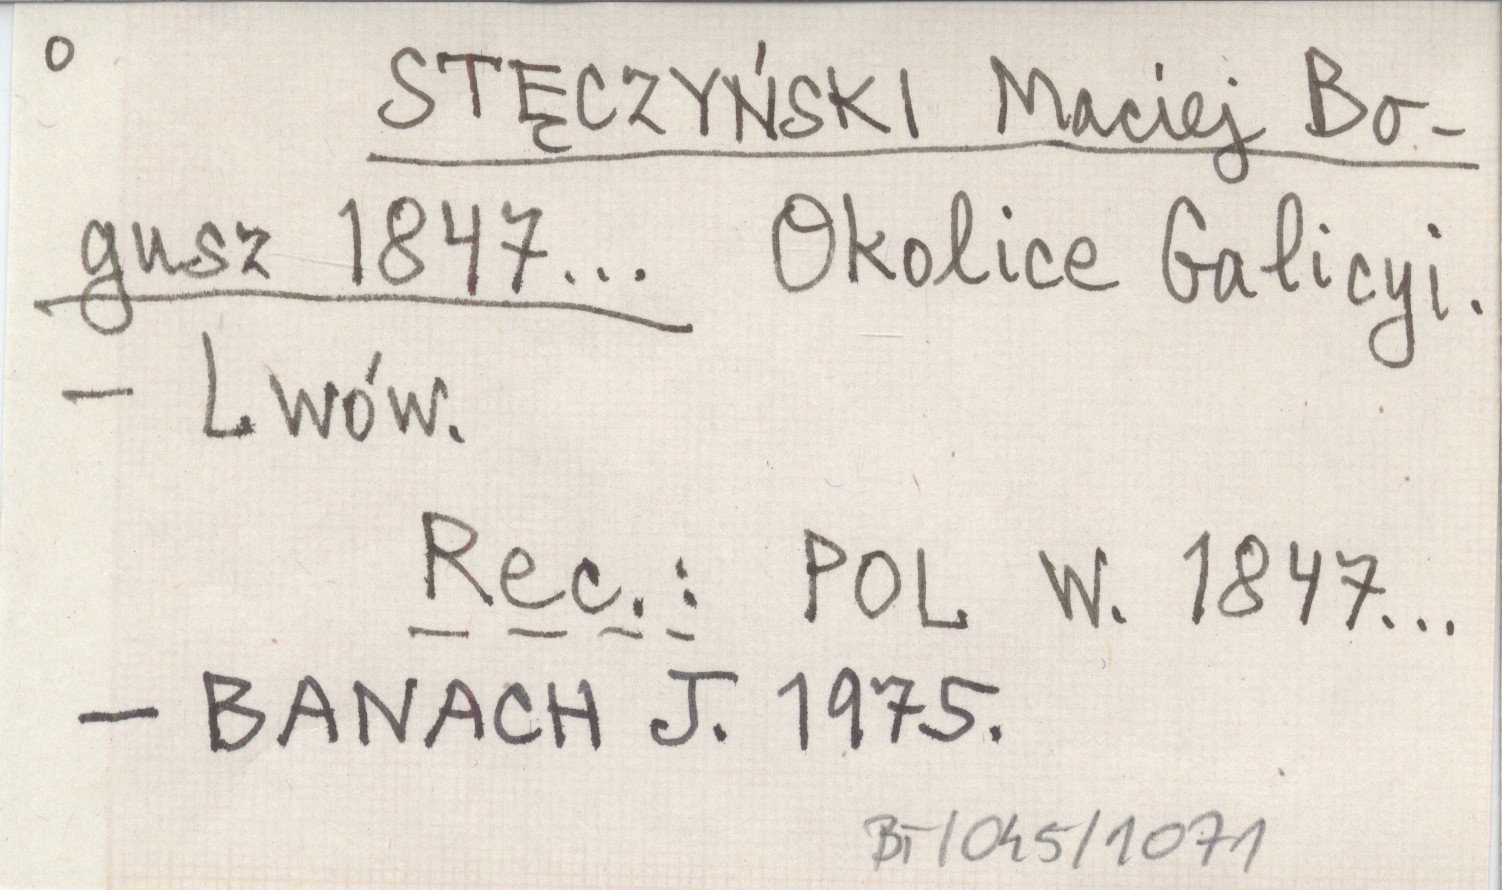 o
STĘCZYŃSKI Maciej Bo-
gusz 1847... Okolice Galicyi.
— Lwów.
Rec.: POL W. 1847...
— BANACH J. 1975.
BT/045/1071